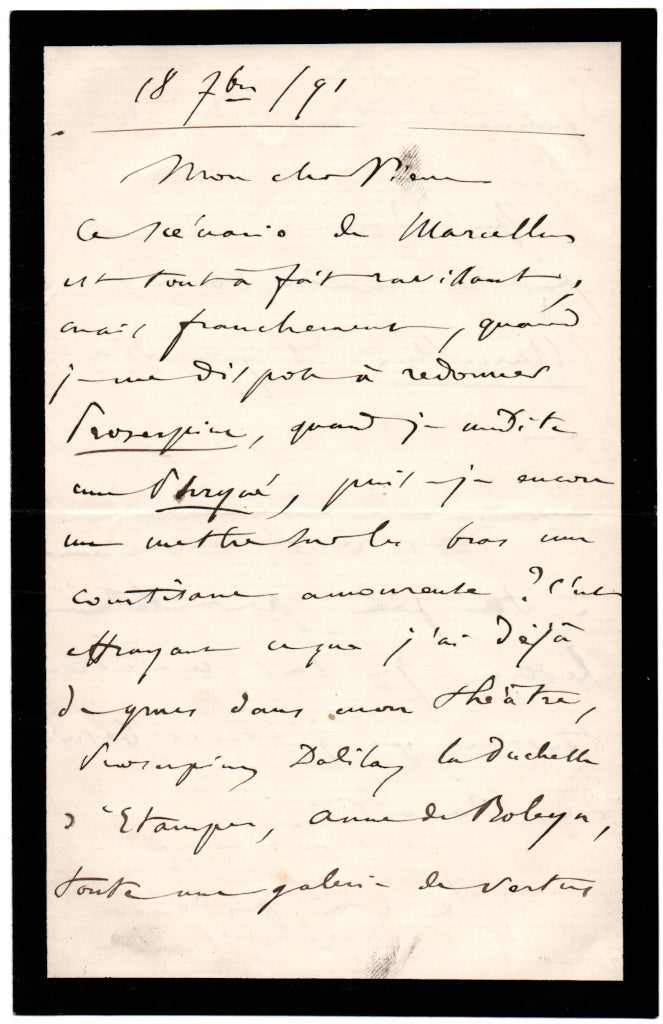 18 7bre /91
Mon cher Pierre
Ce scénario de Marcellus
est tout à fait ravissant,
mais franchement, quand
je me dispose à redonner
Proserpine, quand je médite
une Phryné, puis-je encore
me mettre sur les bras une
courtisane amoureuse ? C'est
effrayant ce que j'ai déjà
de grues dans mon théâtre,
Proserpine, Dalila, la Duchesse
d'Etampes, Anne de Boleyn,
toute une galerie de vertus